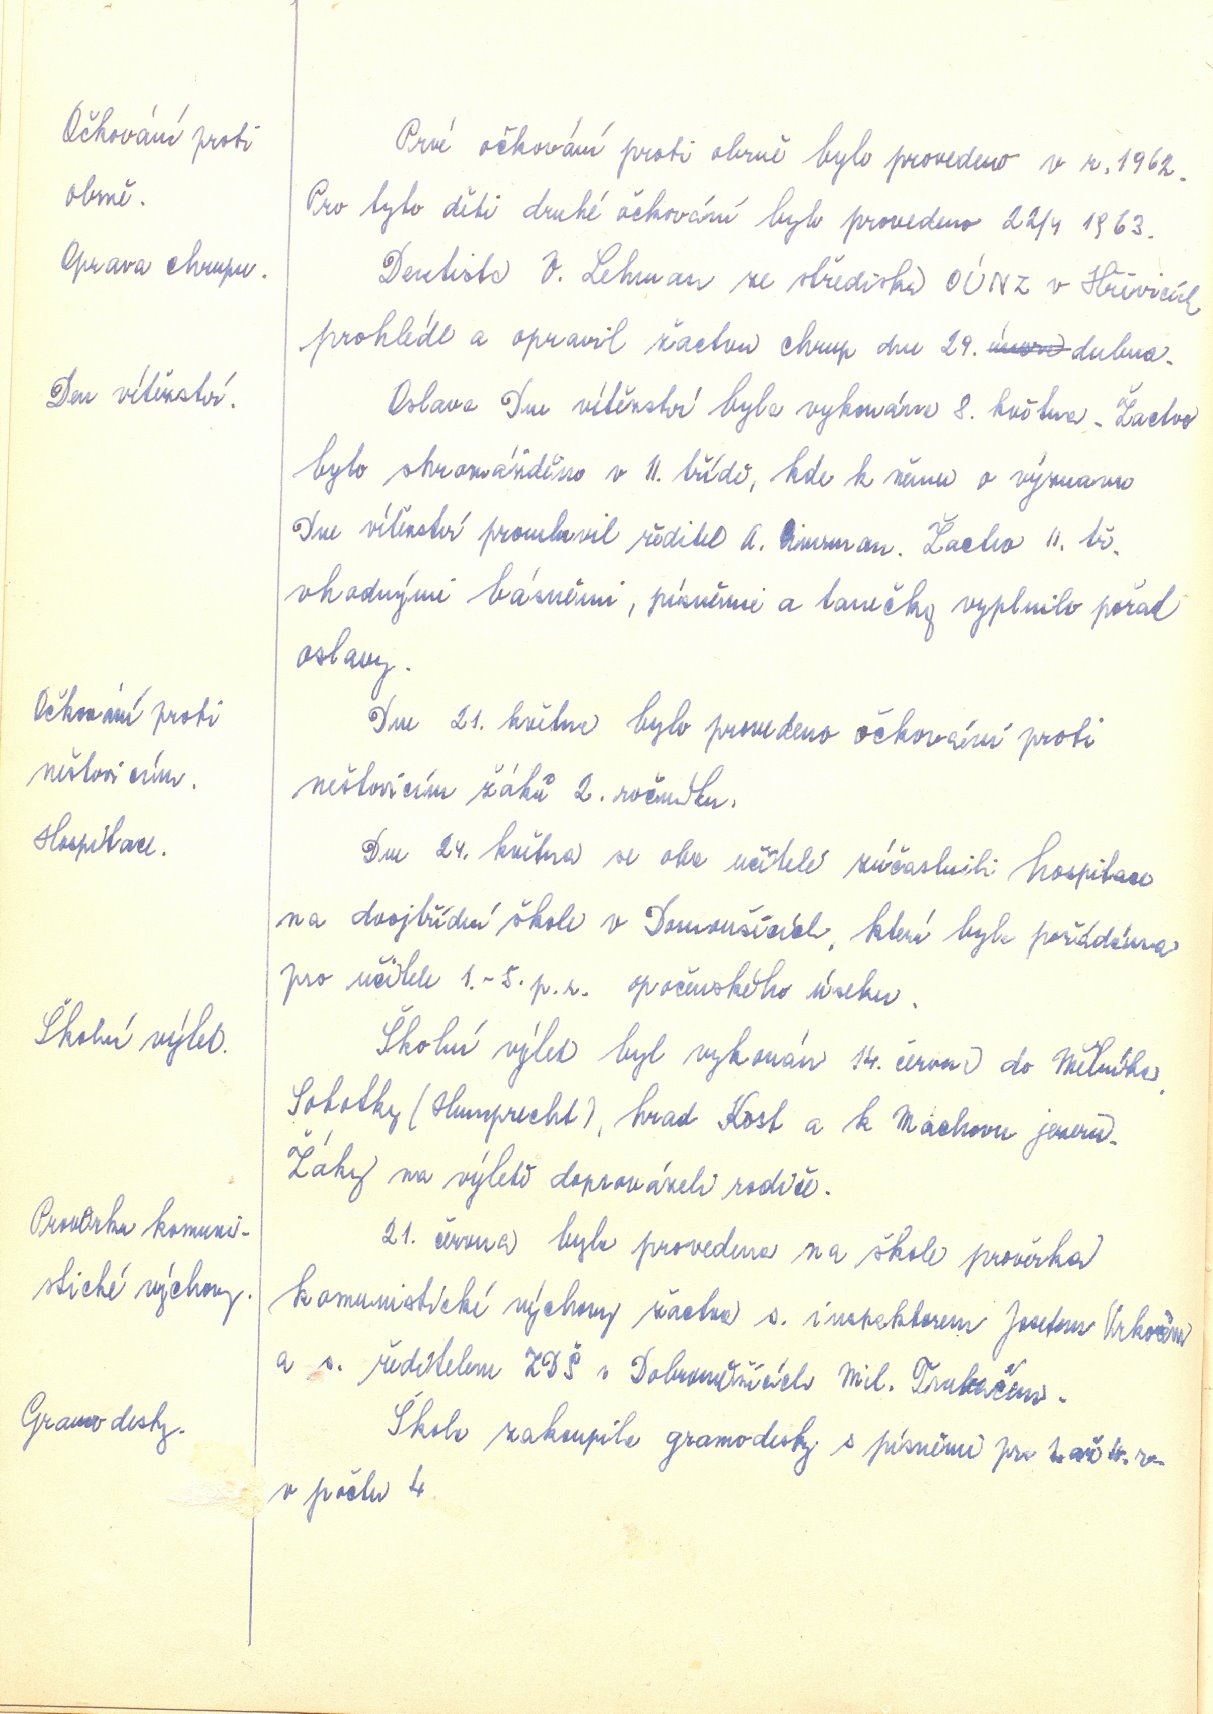 Očkování proti
obrně.
Prvé očkování proti obrně bylo provedeno v r. 1962.
Pro tyto děti druhé očkování bylo provedeno 22/4 1963.
Oprava chrupu.
Dentista V. Lehman ze střediska OÚNZ v Hřivicích
prohlédl a opravil žactvu chrup dne 29. února dubna.
Den vítězství.
Oslava Dne vítězství byla vykonána 8. května. Žactvo
bylo shromážděno v II. třídě, kde k němu o významu
Dne vítězství promluvil ředitel A. Zimrman. Žactvo II. tř.
vhodnými básněmi, písněmi a tanečky vyplnilo pořad
oslavy.
Očkování proti
neštovicím.
Dne 21. května bylo provedeno očkování proti
neštovicím žáků 2. ročníku.
Hospitace.
Dne 24. května se oba učitelé zúčastnili hospitace
na dvojtřídní škole v Domoušicích, která byla pořádána
pro učitele 1.-5. p. r. opočenského úseku.
Školní výlet.
Školní výlet byl vykonán 14. června do Mělníka,
Sobotky (Humprecht), hrad Kost a k Máchovu jezeru.
Žáky na výletě doprovázeli rodiče.
Prověrka komuni-
stické výchovy.
21. června byla provedena na škole prověrka
komunistické výchovy žactva s. inspektorem Josefem
a s. ředitelem ZDŠ v Dobroměřicích Mil. Trubačem.
Gramodesky.
Škola zakoupila gramodesky s písněmi pro 1. až 4. r.
v počtu 4